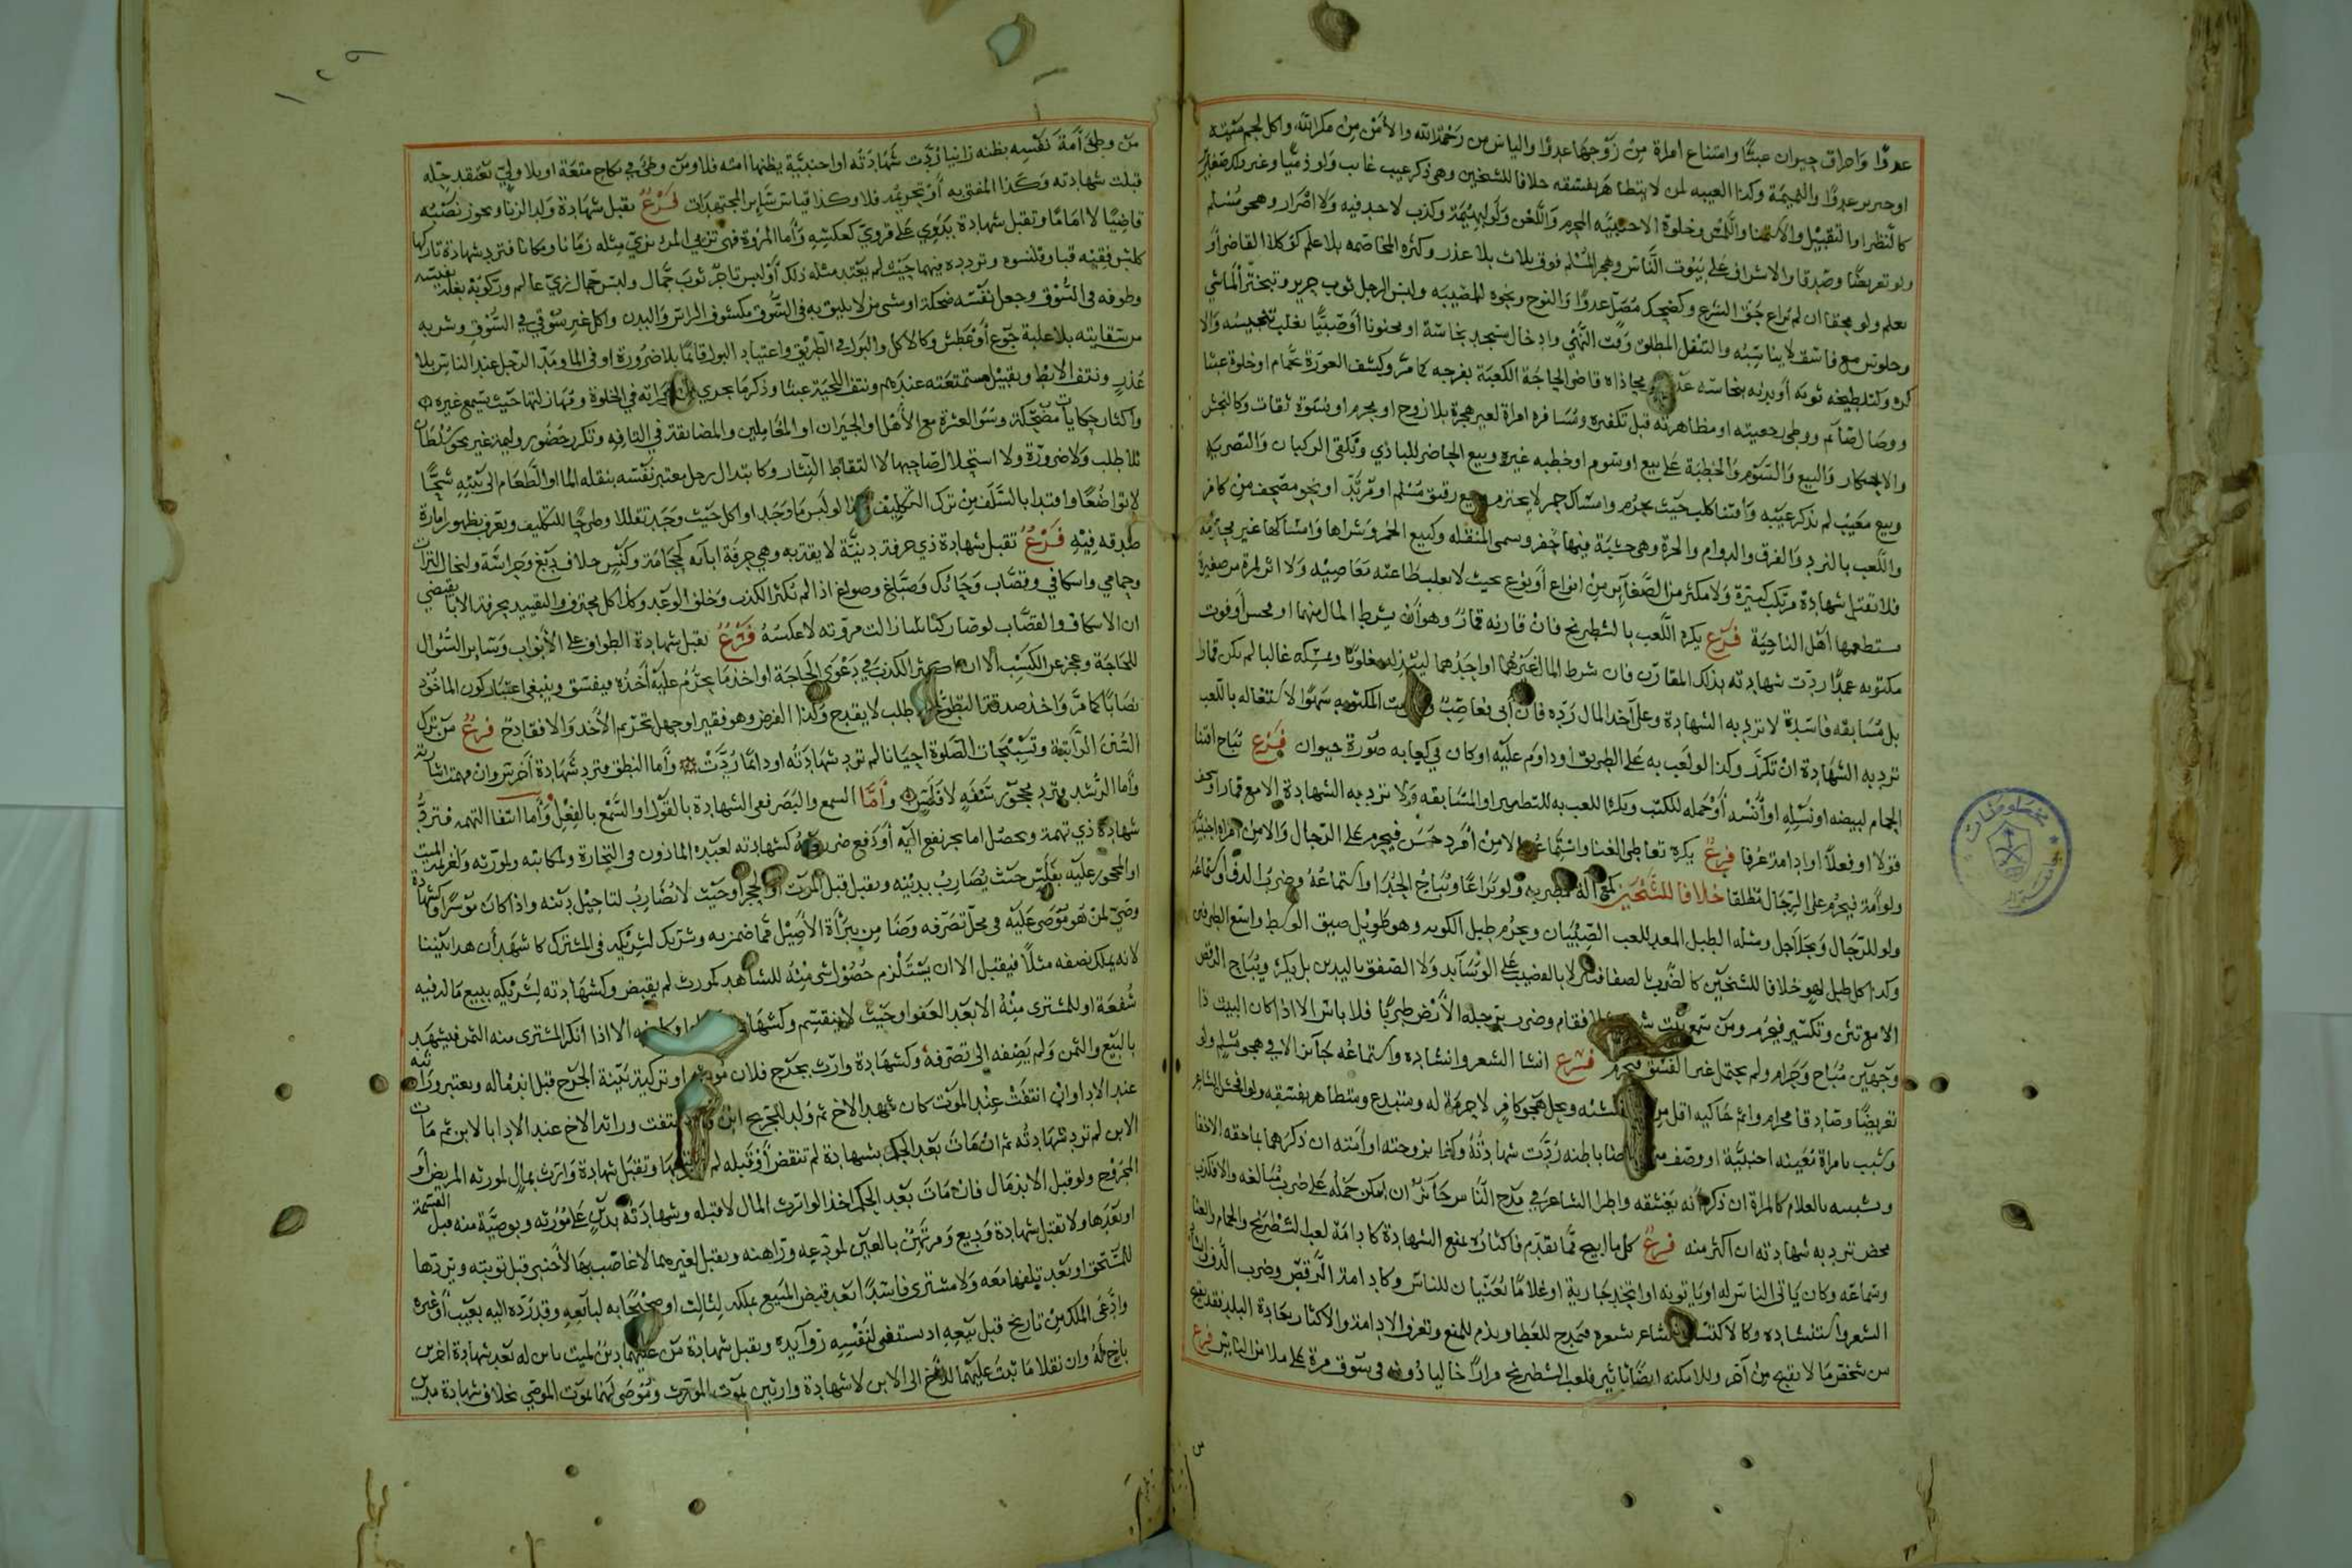 عدوًّا واحراق حيوان عبثًا وامتناع امراة من زوجها عدوًا والياس من رحمة الله والامن من مكر الله واكل لحم ميتة
او خنزير عدوًا والنميمة وكذا الغيبه لمن لا يتظاهر بفسقه خلافا للشيخين وهى ذكر عيب غايب ولو ذميًّا وغير ذلك صغاير
كالنظر او التقبيل والاستمنا واللمس وخلوة الاجنبيه المحرم واللعن ولو لبهيمة وكذب لاحد فيه ولا اضرار وهجو مسلم
ولو تعريضًا وصدقا والاشراف على بيوت الناس وهجر المسلم فوق ثلاث بلا عذر وكثره المخاصمه بلا علم كوكلا القاضى او
بعلم ولو محقا ان لم يراع حق الشرع وكضحك مصل عدوًا والنوح ونحوه للمصيبه ولبس الرجل ثوب حرير وتبختر الماشي
وجلوس مع فاسق لايناسه والتنفل المطلق وقت النهي وادخال مسجد نجاسة او مجنونا او صبيًّا يغلب تنجيسه والا
كره وكتلطيخه ثوبه او بدنه بنجاسه ومحاذاة قاضى الحاجة الكعبة بفرجه كما مر وكشف العورة بحمام او خلوة عبثا
ووصال صايم ووطى رجعيته او مظاهرته قبل تكفيره ومسافره امراة لغير هجرة بلا زوج او محرم او نسوة ثقات وكالنجش
والاحتكار والبيع والسوم والخطبة على بيع او سوم او خطبه غيره وبيع الحاضر للبادي وتلقى الركبان والتصريه
وبيع معيب لم يذكر عيبه واقتنا كلب حيث يحرم وامساك خمر لا يحترم وبيع رقيق مسلم او مرتد او نحو مصحف من كافر
واللعب بالنرد والفرق والدوام والحزة وهى خشبة فيها حفر وسمى المنقله وكبيع الخمر وشراها وامساكها غير محترمه
فلا تقبل شهادة مرتكب كبيرة ولا مكثر من الصغاير من انواع او نوع بحيث لا يغلب طاعته معاصيه ولا اثر لمرة من صغيرة
يستعظمها اهل الناحية فرع يكره اللعب بالشطرنج فان قارنه قمار وهو ان يشرط المال منهما او محسن او فوت
مكتوبه عمدًا ردت شهادته بذلك المقارن فان شرط المال غيرهما او احدهما ليبذله مغلوبًا ويمسكه غالبا لم يكن قمارا
بل مسابقه فاسدة لا ترد به الشهادة وعلى آخذ المال رده فان ابى فغاصب المكتوبه سهوًا لاشتغاله باللعب
ترد به الشهادة ان تكرر وكذا لو لعب به على الطريق او داوم عليه او كان في كعابه صورة حيوان فرع يباح اقتنا
الحمام لبيضه او نسله او انسه او حمله للكتب ويكره اللعب به للتطيير او المسابقه ولا ترد به الشهادة الا مع قمار
قولا او فعلاً او ادامة عرفا فرع يكره تعاطى الغنا واستماعه الا من امرد حسن فيحرم على الرجال والا من امراة اجنبية
ولو امة فيحرم على الرجال مطلقا خلافا للشيخين كمع آلة مطربه ولو يراعًا ويباح الحدا واستماعه وضرب الدف واستماعه
ولو للرجال وبجلاجل ومثله الطبل المعد للعب الصبيان ويحرم طبل الكوبه وهو طويل ضيق الوسط واسع الطرفين
وكذا كل طبل لهو خلافا للشيخين كالضرب بالقضيب على الوسايد ولا الصفق باليدين بل يكره ويباح الرقص
الا مع تثن وتكسر فيحرم ومن سمع بيت شعر فقام وضرب برجله الارض طربًا فلا باس الا اذا كان البيت ذا
وجهين مباح وحرام ولم يحتمل غير الفسق فيحرم فرع انشا الشعر وانشاده واستماعه جايز الا في هجو مسلم ولو
تعريضًا وصادقا محرام واثم حاكيه اقل من منشئه ويحل هجو كافر لا حرمة له ومبتدع ومتظاهر بفسقه ولو افحش الشاعر
وشبب بامراة معينه اجنبية او وصف من باطنه ردت شهادته وكذا بزوجته او امته ان ذكرهما بما حقه الاخفا
وتشبيبه بالغلام كالمراة ان ذكر انه يعشقه واطرا الشاعر في مدح الناس جايز ان امكن حمله على ضرب مبالغه والا فكذب
محض ترد به شهادته ان اكثر منه فرع كل ما ابيح مما تقدم فاكثاره يمنع الشهادة كادامة لعب الشطرنج والحمام والغنا
وسماعه وكان ياتى الناس له او ياتونه او اتخذ جارية او غلامًا يغنيان للناس وكادامة الرقص وضرب الدف
الشعر واستنشاده وكالاكتساب الشاعر بشعره فيمدح للعطا ويذم للمنع وتعرف الادامة والاكثار بعادة البلد فقد يقبح
من شخص ما لا يقبح من آخر وللامكنة ايضًا تاثير فلعب الشطرنج مرارًا خاليا دونه فى سوق مرة على ملا من الناس فرع
١٢٩
من وطئ امة نفسه بظنه زانيا ردت شهادته او اجنبية يظنها امته فلا ومن وطئ في نكاح متعة او بلا ولي يعتقد حله
قبلت شهادته وكذا المفتى به او تحريمه فلا وكذا قياس ساير المجتهدات فرع تقبل شهادة ولد الزنا ويجوز نصبه
قاضيًا لا امامًا وتقبل شهادة بدوي على قروي كعكسه واما المروة فهى تزيي المرء بزي مثله زمانا ومكانا فترد شهادة تاركها
كلبس فقيه قبا وقلنسوه وتردده فيهما حيث لم يعتد مثله ذلك او لبس تاجر ثوب جمال ولبس جمال زي عالم وركوبه بغلة نفيسه
وطوفه فى السوق وجعل نفسه ضحكة او مشى من لا يليق به فى السوق مكشوف الراس والبدن واكل غير سوقي في السوق وشربه
من سقايته بلا غلبة جوع او عطش وكالاكل والبول في الطريق واعتياد البول قائمًا بلا ضرورة او فى الما ومد الرجل عند الناس بلا
عذر ونتف الابط وتقبيل مستمتعته عندهم ونتف اللحية عبثا وذكر ما يجري امراته في الخلوة ومهازلتها حيث يسمع غيره
واكثار حكايات مضحكة وسؤ العشرة مع الاهل والجيران او المعاملين والمضايقة في التافه وتكرر حضور وليمة غير نحو سلطان
بلا طلب ولا ضرورة ولا استحلال صاحبها لا التقاط النثار وكابتذال رجل معتبر نفسه بنقله الما او الطعام الى بيته شحًّا
لا تواضعًا واقتدا بالسلف من ترك التكليف لو لبس ما وجد او اكل حيث وجد تقللا وطرحًا للتكليف ويعرف بظهور امارة
صدقه فيه فرع تقبل شهادة ذي حرفة دنية لا يقتد به وهي حرفة ابائه كحجامة وكنس خلاف دبغ وحراسة ونخال التراب
وحمامي واسكافي وقصاب وحائك وصباغ وصواغ اذا لم تكثر الكذب وخلف الوعد وكذا كل محترف والتقييد بحرفة الابا يقتضي
ان الاسكاف والقصاب لو صار كناسا زالت مروته لا عكسه فرع تقبل شهادة الطواف على الابواب وساير السؤال
للحاجة وعجز عن الكسب الا ان اكثر الكذب في دعوى الحاجة او اخذ ما يحرم عليه اخذه فيفسق وينبغى اعتبار كون الماخوذ
نصابًا كما مر واخذ صدقة التطوع طلب لا يقدح وكذا الفرض وهو فقير او جهل تحريم الاخذ والا فقادح فرع من ترك
السنن الراتبة وتسبيحات الصلوة احيانا لم ترد شهادته او دائمًا ردت واما النطق فترد شهادة اخرس وان فهمت اشارته
واما الرشد فترد محجور سفه لا فلس واما السمع والبصر ففى الشهادة بالقول او السمع بالفعل واما انتفا التهمه فترد
شهادة ذي تهمة وتحصل اما بجر نفع اليه او دفع ضر كشهادته لعبده الماذون فى التجارة ولمكاتبه ولمورثه ولغريمه الميت
او المحجور عليه بفلس حيث يضارب بدينه وتقبل قبل الموت او الحجر او حيث لا يضارب لتاجيل دينه واذا كان موسرًا وكشهادة
وصي لمن هو موصى عليه فى محل تصرفه وضامن ببراة الاصيل مما ضمن به وشريك لشريكه فى المشترك كما شهد ان هذا بيننا
لانه يملك نصفه مثلاً فيقبل الا ان يستلزم حصول شى منه للشاهد كمورث لم يقبض وكشهادته لشريكه ببيع ماله فيه
شفعة او للمشترى منه الا بعد العفو او حيث لا ينقسم وكشهادة الا اذا انكر المشترى منه الثمن فيشهد
بالبيع والثمن ولم يضفه الى تصرفه وكشهادة وارث بجرح فلان مورثه او تزكية بينة الجرح قبل اندماله ويعتبر وراثته
عند الادا وان انتفت عند الموت كان شهد الاخ ثم ولد للجريح ابن انتفت وراثة الاخ عند الادا بالابن ثم مات
الابن لم ترد شهادته ثم ان مات بعد الحكم بشهادة لم تنقض او قبله لم وتقبل شهادة وارث بمال لمورثه المريض او
المجروح ولو قبل الاندمال فان مات بعد الحكم اخذ الوارث المال لا قبله وشهادته بدين على مورثه وبوصية منه قبل القسمة
او بعدها ولا تقبل شهادة وديع ومرتهن بالعين لمودعه وراهنه وتقبل لغيرهما لا غاصب بها لاجنبى قبل توبته وبردها
للمستحق او بعد تلفها معه ولا مشترى فاسدًا بعد قبض المبيع بملك لثالث او صحيحًا به لبائعه وقد رده اليه بعيب او غيره
وادعى الملك من تاريخ قبل بيعه اد يستبقى لنفسه زوايده وتقبل شهادة من عليهما دين لميت بابن له بعد شهادة اخرين
باخ له وان نقلا ما ثبت عليهما للاخ الى الابن لا شهادة وارثين بموت المورث وموصى لهما بموت الموصي بخلاف شهادة مدين